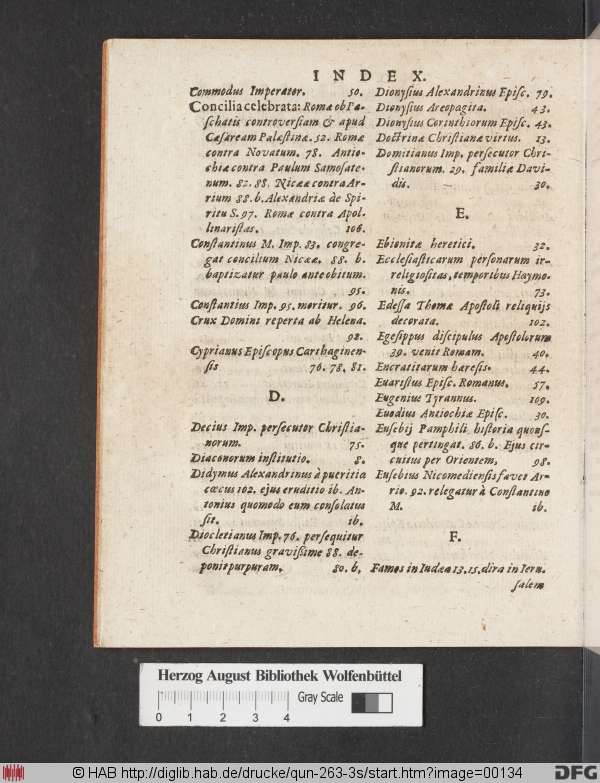 INDEX.
Commodus Imperator. 50.
Concilia celebrata: Romæ ob Pa-
schatis controversiam & apud
Cæsáream Palæstinæ. 52. Romæ
contra Novatum. 78. Antio-
chiæ contra Paulum Samosate-
num. 82. 88. Nicææ contra Ar-
rium 88. b. Alexandriæ de Spi-
ritu S. 97. Romæ contra Apol-
linaristas. 106.
Constantinus M. Imp. 83. congre-
gat concilium Nicææ, 88. b.
baptizatur paulo ante obitum.
95.
Constantius Imp. 95. moritur. 96.
Crux Domini reperta ab Helena.
92.
Cyprianus Episcopus Carthaginen-
sis 76. 78. 81.
D.
Decius Imp. persecutor Christia-
norum. 75.
Diaconorum institutio. 8.
Didymus Alexandrinus à pueritia
cœcus 102. ejus eruditio ib. An-
tonius quomodo eum consolatus
sit. ib.
Diocletianus Imp. 76. persequitur
Christianus gravissime 88. de-
ponit purpuram. 80. b.
Dionysius Alexandrinus Episc. 79.
Dionysius Areopagita. 43.
Dionysius Corinthiorum Episc. 43.
Doctrinæ Christianæ virtus. 13.
Domitianus Imp. persecutor Chri-
stianorum. 29. familiæ Davi-
dis. 30.
E.
Ebionitæ heretici. 32.
Ecclesiasticarum personarum ir-
religiositas, temporibus Haymo-
nis. 73.
Edessa Thomæ Apostoli reliquijs
decorata. 102.
Egesippus discipulus Apostolorum
39. venit Romam. 40.
Encratitarum hæresis. 44.
Euaristus Episc. Romanus. 57.
Eugenius Tyrannus. 109.
Euodius Antiochiæ Episc. 30.
Eusebij Pamphili historia quous-
que pertingat. 86. b. Ejus cir-
cuitus per Orientem, 98.
Eusebius Nicomediensis favet Ar-
rio. 92. relegatur à Constantino
M. ib.
F.
Fames in Iudæa 13. 15. dira in Ieru-
salem
Herzog August Bibliothek Wolfenbüttel
Gray Scale
0 1 2 3 4
© HAB http://diglib.hab.de/drucke/qun-263-3s/start.htm?image=00134
DFG